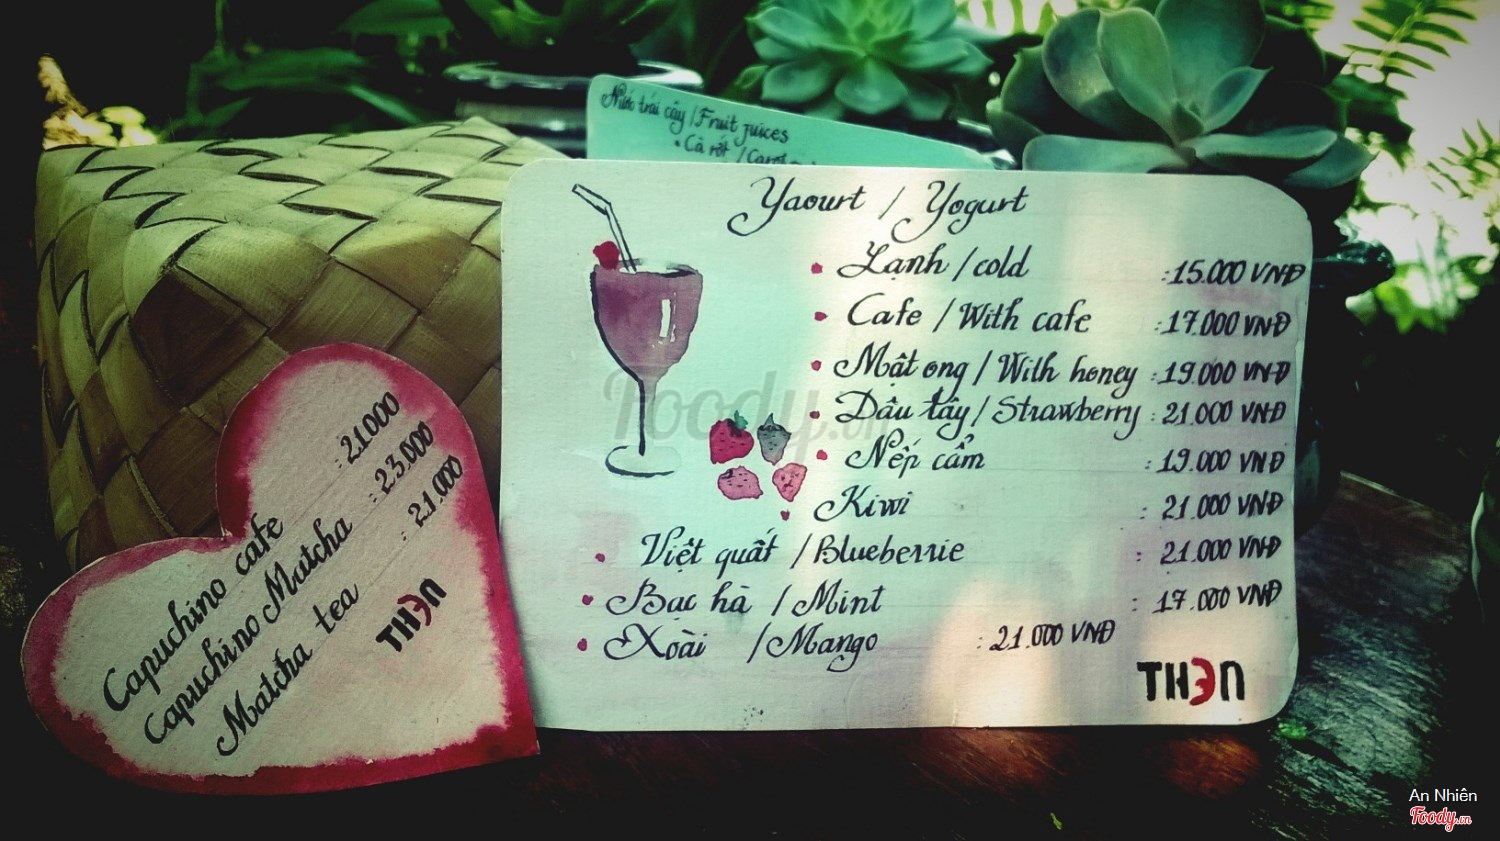 Nước trái cây/Fruit juices
• Cà rốt / Carrot
Yaourt / Yogurt
Lạnh / cold : 15.000 VNĐ
Cafe / With cafe : 17.000 VNĐ
Mật ong / With honey : 19.000 VNĐ
Dâu tây / Strawberry : 21.000 VNĐ
Nếp cẩm : 19.000 VNĐ
Kiwi : 21.000 VNĐ
Việt quất / Blueberrie : 21.000 VNĐ
Bạc hà / Mint : 17.000 VNĐ
Xoài / Mango : 21.000 VNĐ
THEN
Capuchino cafe : 21.000
Capuchino Matcha : 23.000
Matcha tea : 21.000
THEN
Foody.vn
An Nhiên
Foody.vn